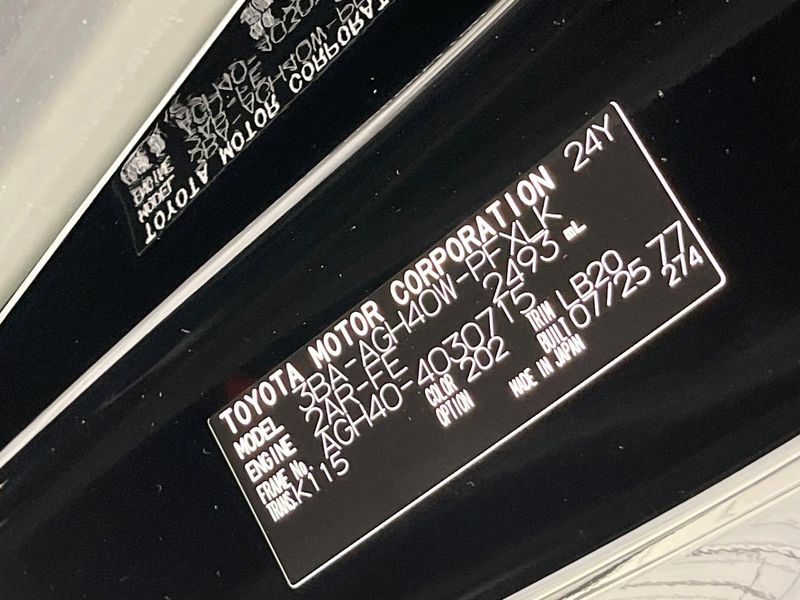 TOYOTA MOTOR CORPORATION 24Y
MODEL 3BA-AGH40W-PFXLK
ENGINE 2AR-FE 2493 mL
FRAME No. AGH40-4030715
COLOR 202 TRIM LB20 77
TRANS. K115 OPTION BUILT 07/25 274
MADE IN JAPAN
TOYOTA MOTOR CORPORATION
MODEL
ENGINE